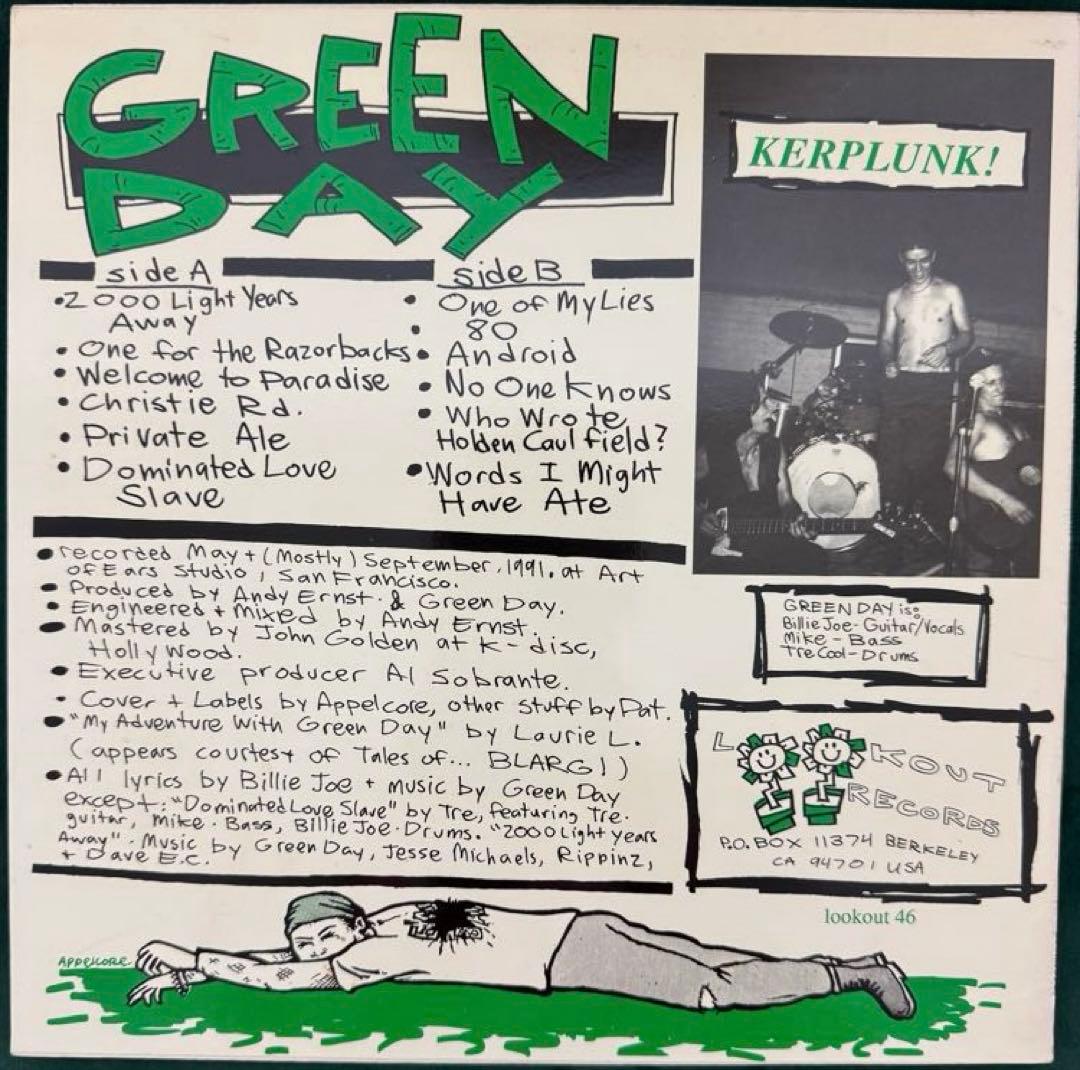 GREEN
DAY
KERPLUNK!
side A
• 2000 Light Years
Away
• One for the Razorbacks
• Welcome to Paradise
• Christie Rd.
• Private Ale
• Dominated Love
Slave
side B
• One of My Lies
• 80
• Android
• No One Knows
• Who Wrote
Holden Caulfield?
• Words I Might
Have Ate
• recorded May + (Mostly) September, 1991, at Art
of Ears Studio, San Francisco.
• Produced by Andy Ernst & Green Day.
• Engineered + Mixed by Andy Ernst.
• Mastered by John Golden at K-disc,
Hollywood.
• Executive producer Al Sobrante.
• Cover + Labels by Appelcore, other stuff by Pat.
• "My Adventure With Green Day" by Laurie L.
(appears courtesy of Tales of... BLARG!)
• All lyrics by Billie Joe + music by Green Day
except: "Dominated Love Slave" by Tre, featuring Tre·
guitar, Mike·Bass, Billie Joe·Drums. "2000 Light years
Away"· Music by Green Day, Jesse Michaels, Rippinz,
+ Dave E.C.
GREEN DAY is:
Billie Joe-Guitar/Vocals
Mike-Bass
Tre Cool-Drums
LOOKOUT
RECORDS
P.O. BOX 11374 BERKELEY
CA 94701 USA
lookout 46
APPELCORE